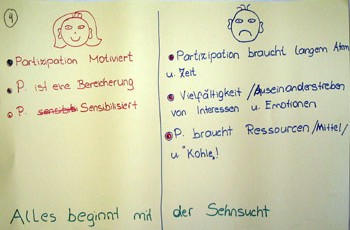 4
• Partizipation Motiviert
• P. ist eine Bereicherung
• P. Sensibilisiert
• Partizipation braucht langem Atem
u. Zeit
• Vielfältigkeit / Auseinanderstreben
von Interessen u. Emotionen
• P. braucht Ressourcen/Mittel/
u "Kohle"!
Alles beginnt mit der Sehnsucht